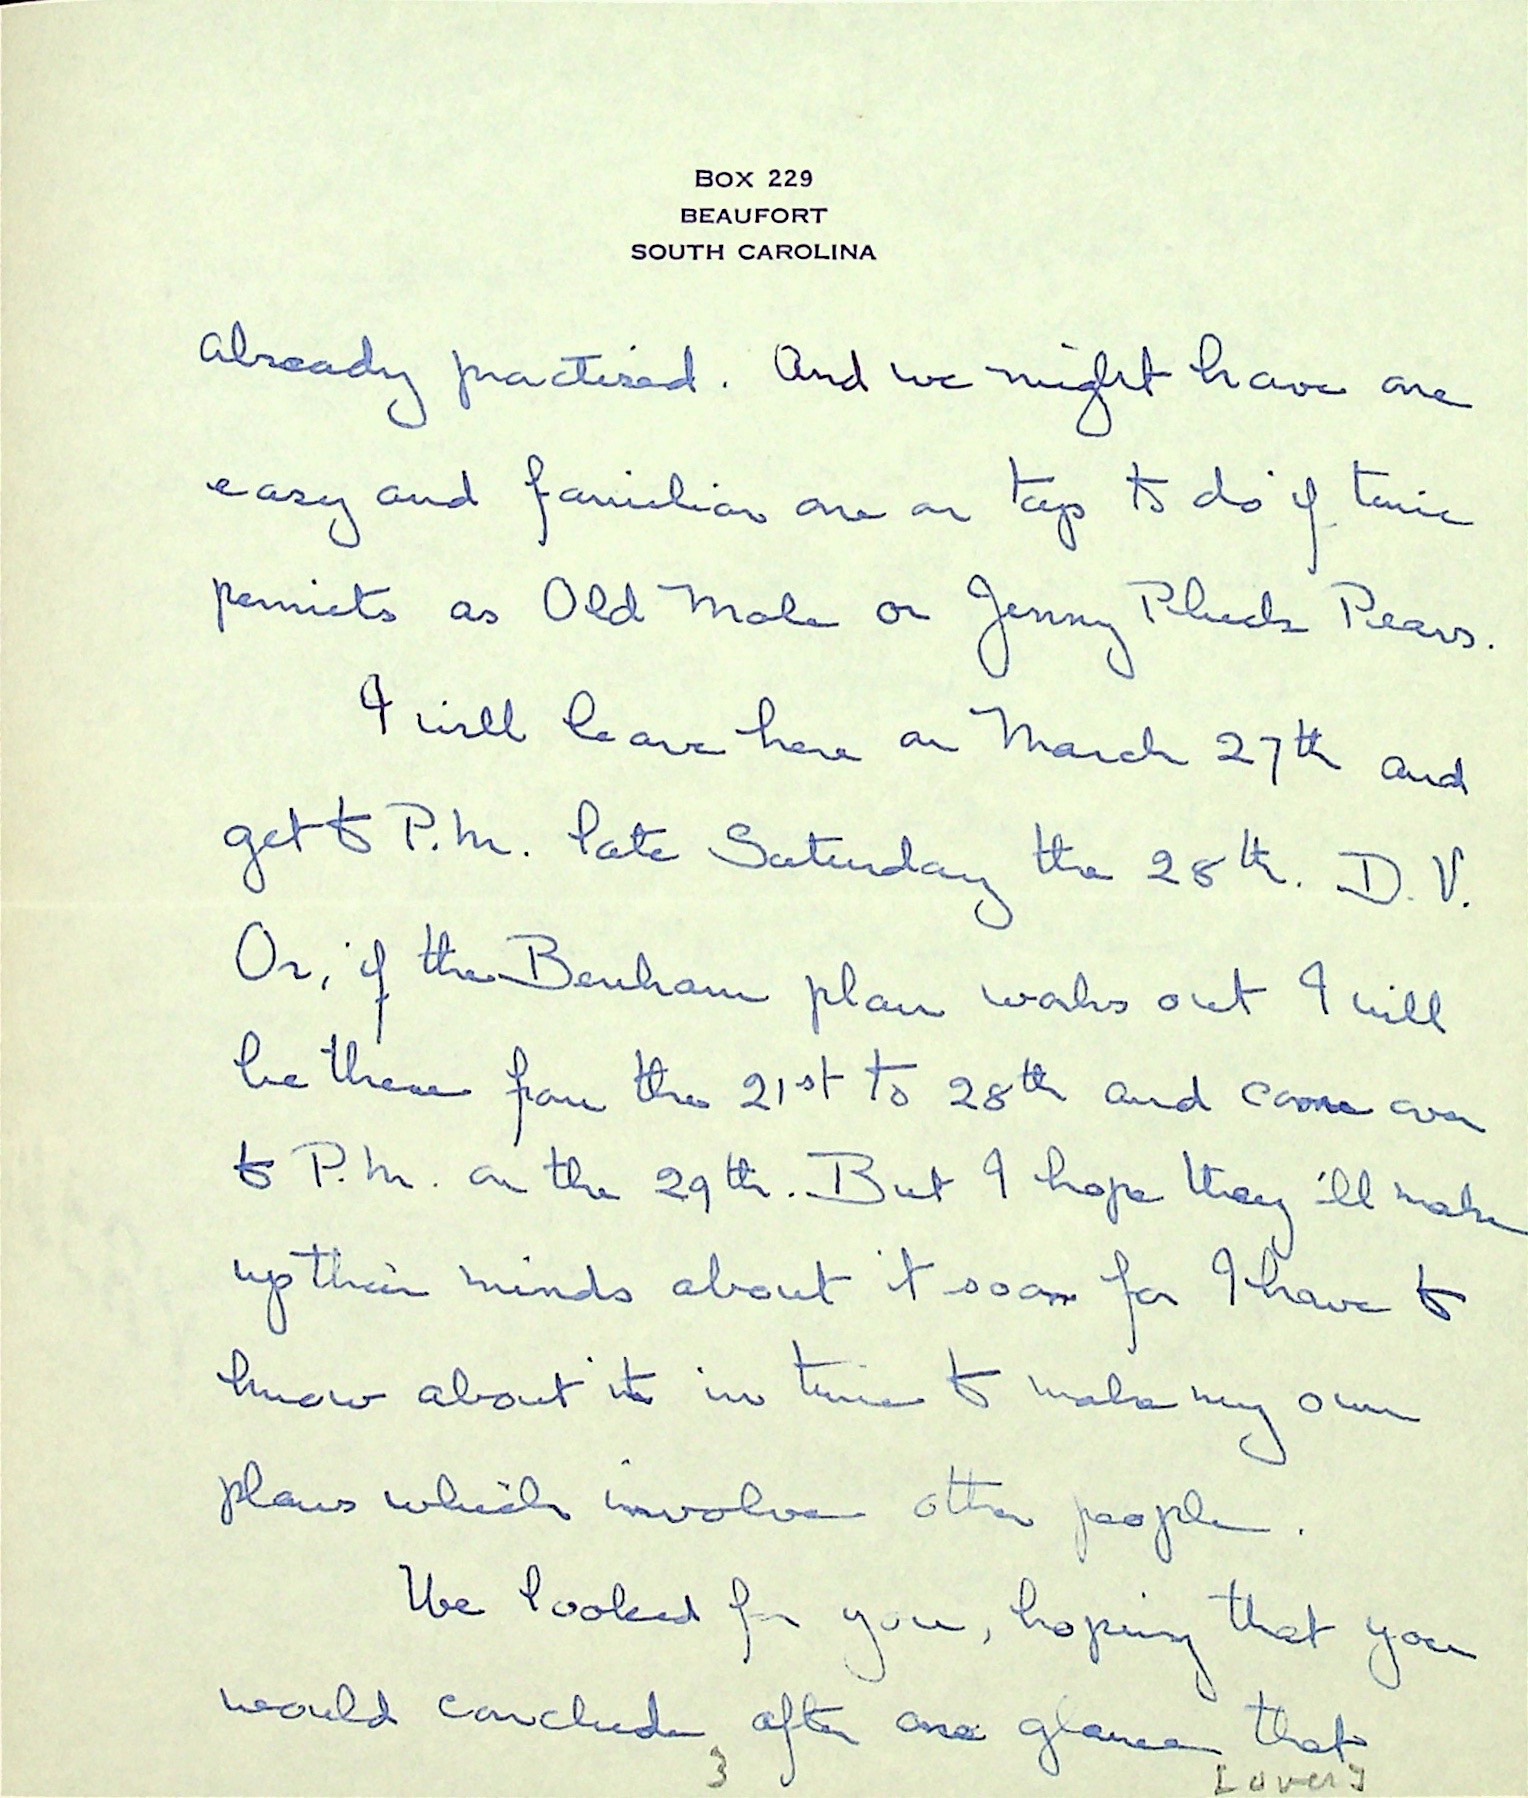 BOX 229
BEAUFORT
SOUTH CAROLINA
already practised. And we might have one
easy and familiar one on tap to do if time
permits as Old Mole or Jenny Pluck Pears.
I will leave here on March 27th and
get to P.M. late Saturday the 28th. D.V.
Or, if the Benham plan works out I will
be there from the 21st to 28th and come over
to P.M. on the 29th. But I hope they'll make
up their minds about it soon for I have to
know about it in time to make my own
plans which involve other people.
We looked for you, hoping that you
would conclude, after one glance that
3
[over]